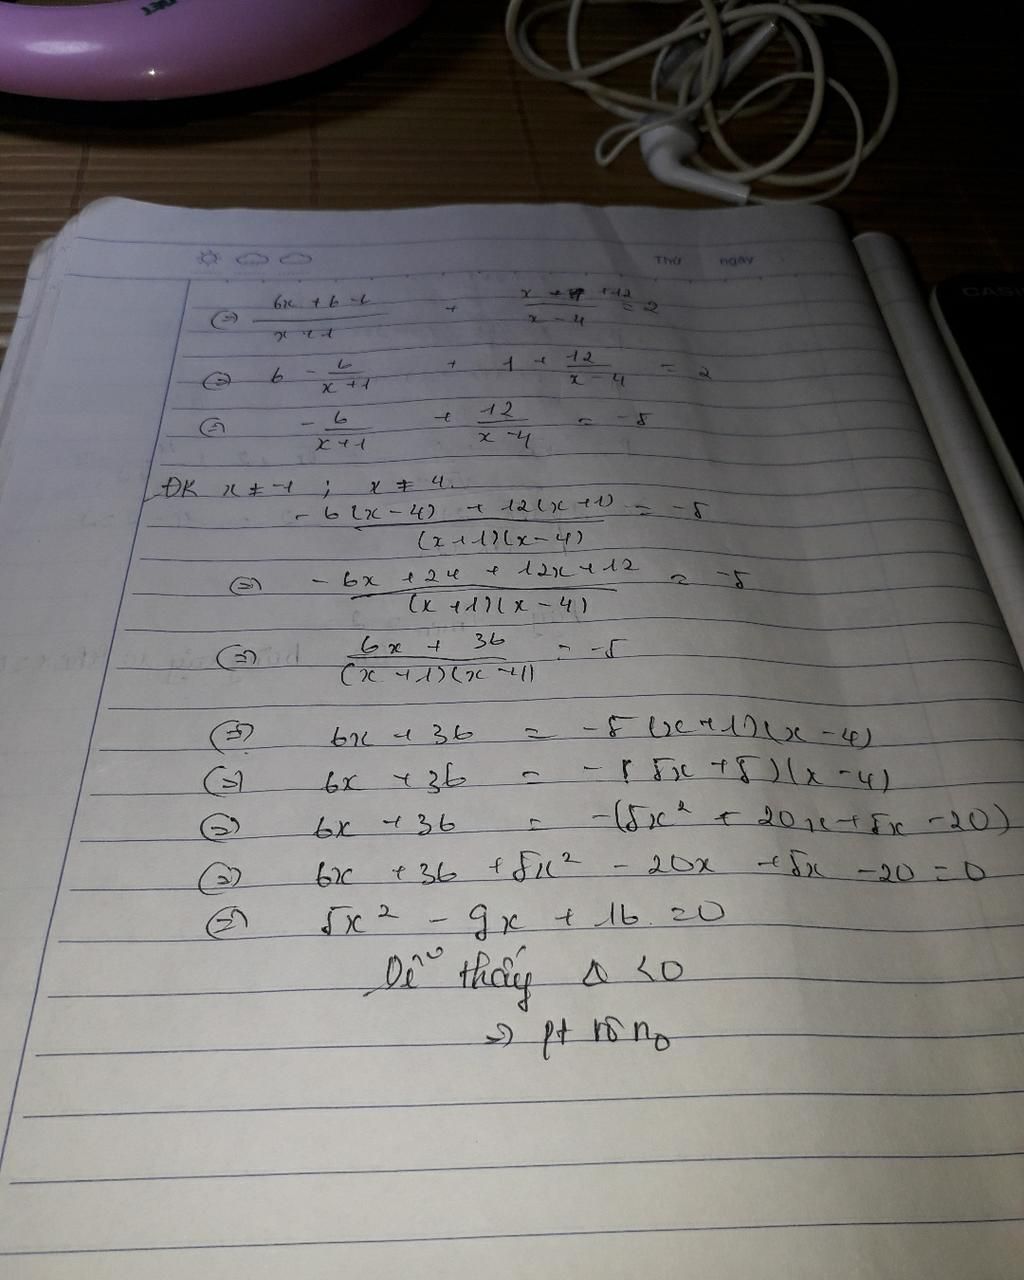 DET
CASIO
Thứ ngày
⇔ (6x + 6 - 6)/(x + 1) + (x - 4 + 12)/(x - 4) = 2
⇔ 6 - 6/(x + 1) + 1 + 12/(x - 4) = 2
⇔ - 6/(x + 1) + 12/(x - 4) = -5
ĐK x ≠ -1 ; x ≠ 4.
(-6(x - 4) + 12(x + 1))/((x + 1)(x - 4)) = -5
⇔ (-6x + 24 + 12x + 12)/((x + 1)(x - 4)) = -5
⇔ (6x + 36)/((x + 1)(x - 4)) = -5
⇔ 6x + 36 = -5(x + 1)(x - 4)
⇔ 6x + 36 = -(5x + 5)(x - 4)
⇔ 6x + 36 = -(5x² + 20x + 5x - 20)
⇔ 6x + 36 + 5x² - 20x + 5x - 20 = 0
⇔ 5x² - 9x + 16 = 0
Dễ thấy Δ < 0
⇒ pt vô n₀